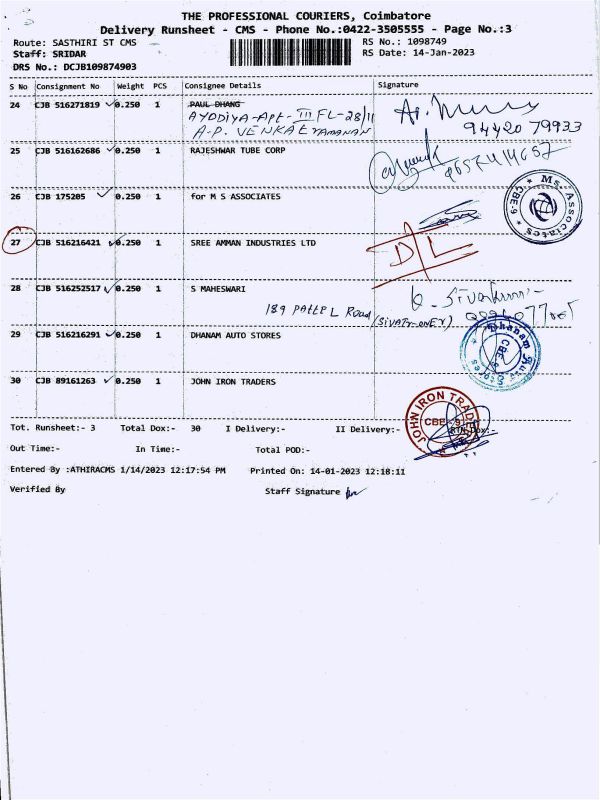 THE PROFESSIONAL COURIERS, Coimbatore
Delivery Runsheet - CMS - Phone No.:0422-3505555 - Page No.:3
Route: SASTHIRI ST CMS RS No.: 1098749
Staff: SRIDAR RS Date: 14-Jan-2023
DRS No.: DCJB109874903
S No Consignment No Weight PCS Consignee Details Signature
24 CJB 516271819 0.250 1 PAUL DHANG
AYODIYA-Apt- III FL-28/11
A.P. VENKATRAMANAN
94420 79933
25 CJB 516162686 0.250 1 RAJESHWAR TUBE CORP
26 CJB 175205 0.250 1 for M S ASSOCIATES
Ms. Associates * CBE.9 *
27 CJB 516216421 0.250 1 SREE AMMAN INDUSTRIES LTD
D L
28 CJB 516252517 0.250 1 S MAHESWARI
189 Road
29 CJB 516216291 0.250 1 DHANAM AUTO STORES
Dhanam Auto Stores CBE
30 CJB 89161263 0.250 1 JOHN IRON TRADERS
JOHN IRON TRADERS CBE-9
Tot. Runsheet:- 3 Total Dox:- 30 I Delivery:- II Delivery:- RTN Dox:-
Out Time:- In Time:- Total POD:-
Entered By :ATHIRACMS 1/14/2023 12:17:54 PM Printed On: 14-01-2023 12:18:11
Verified By Staff Signature